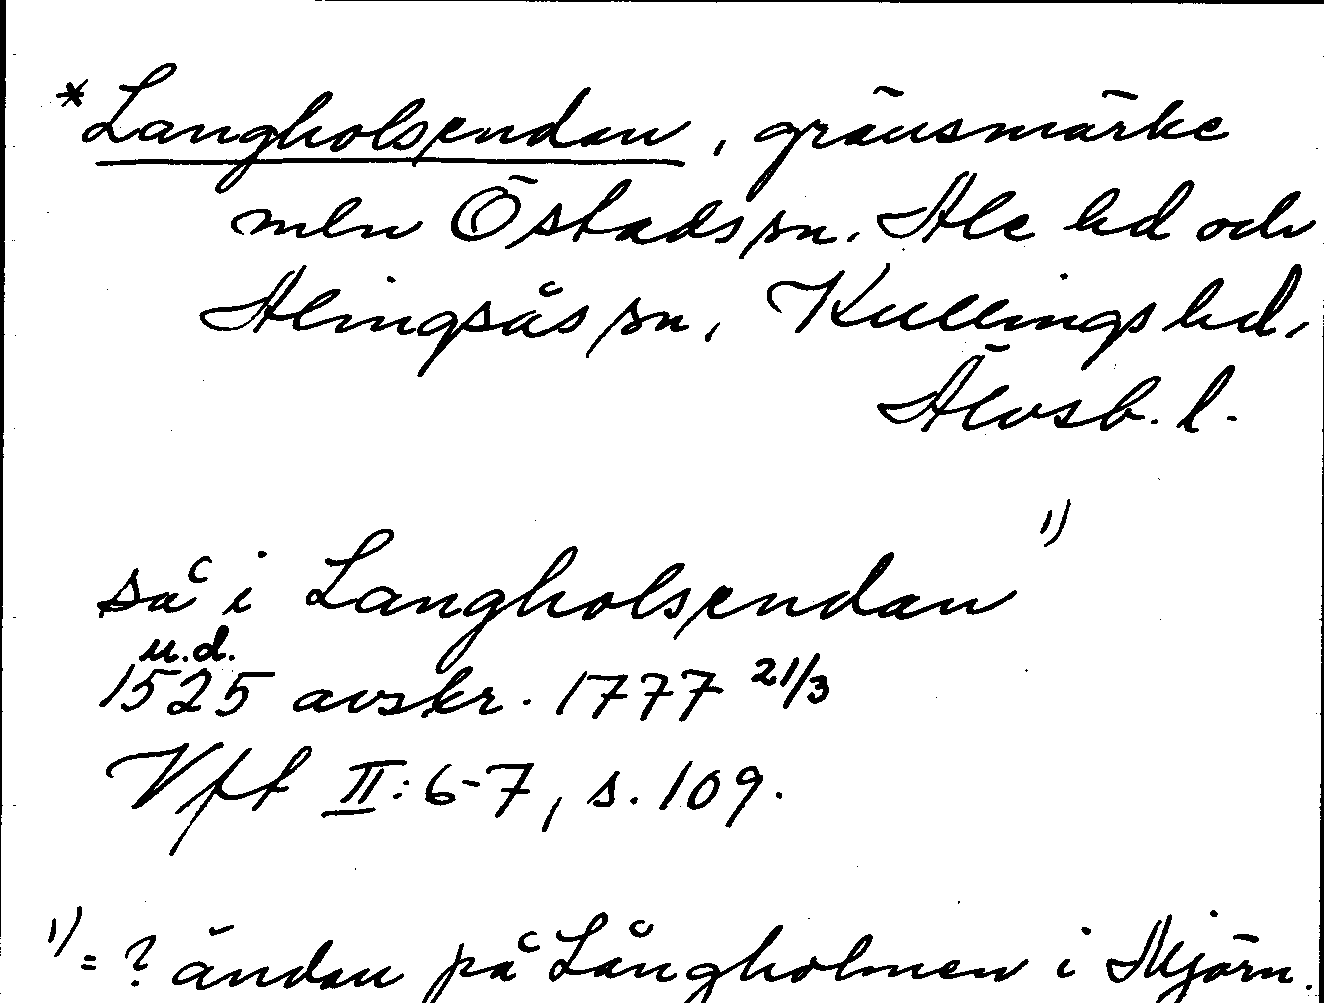 *Langholsendan, gränsmärke
mln Östads sn. Ale hd och
Alingsås sn, Kullings hd,
Älvsb. l.
så i Langholsendan 1)
u.d.
1525 avskr. 1777 21/3
Vft II: 6-7, s. 109.
1) = ? ändan på Långholmen i Mjörn.